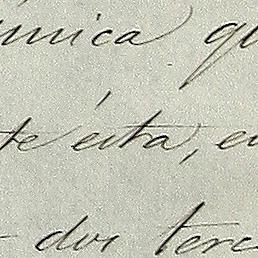 única qu
te ésta, en
- dos terce